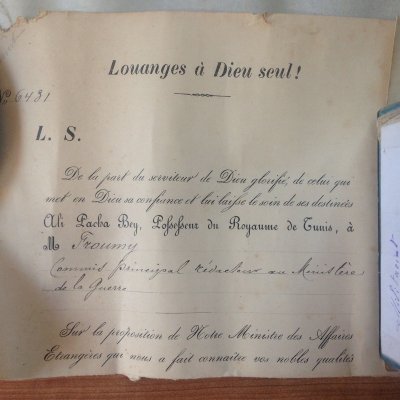 Louanges à Dieu seul!
No 6431
L. S.
De la part du serviteur de Dieu glorifié, de celui qui
met en Dieu sa confiance et lui laisse le soin de ses destinées
Ali Pacha Bey, Possesseur du Royaume de Tunis, à
M Froumy
Commis principal rédacteur au Ministère
de la Guerre
Sur la proposition de Notre Ministre des Affaires
Etrangères qui nous a fait connaître vos nobles qualités